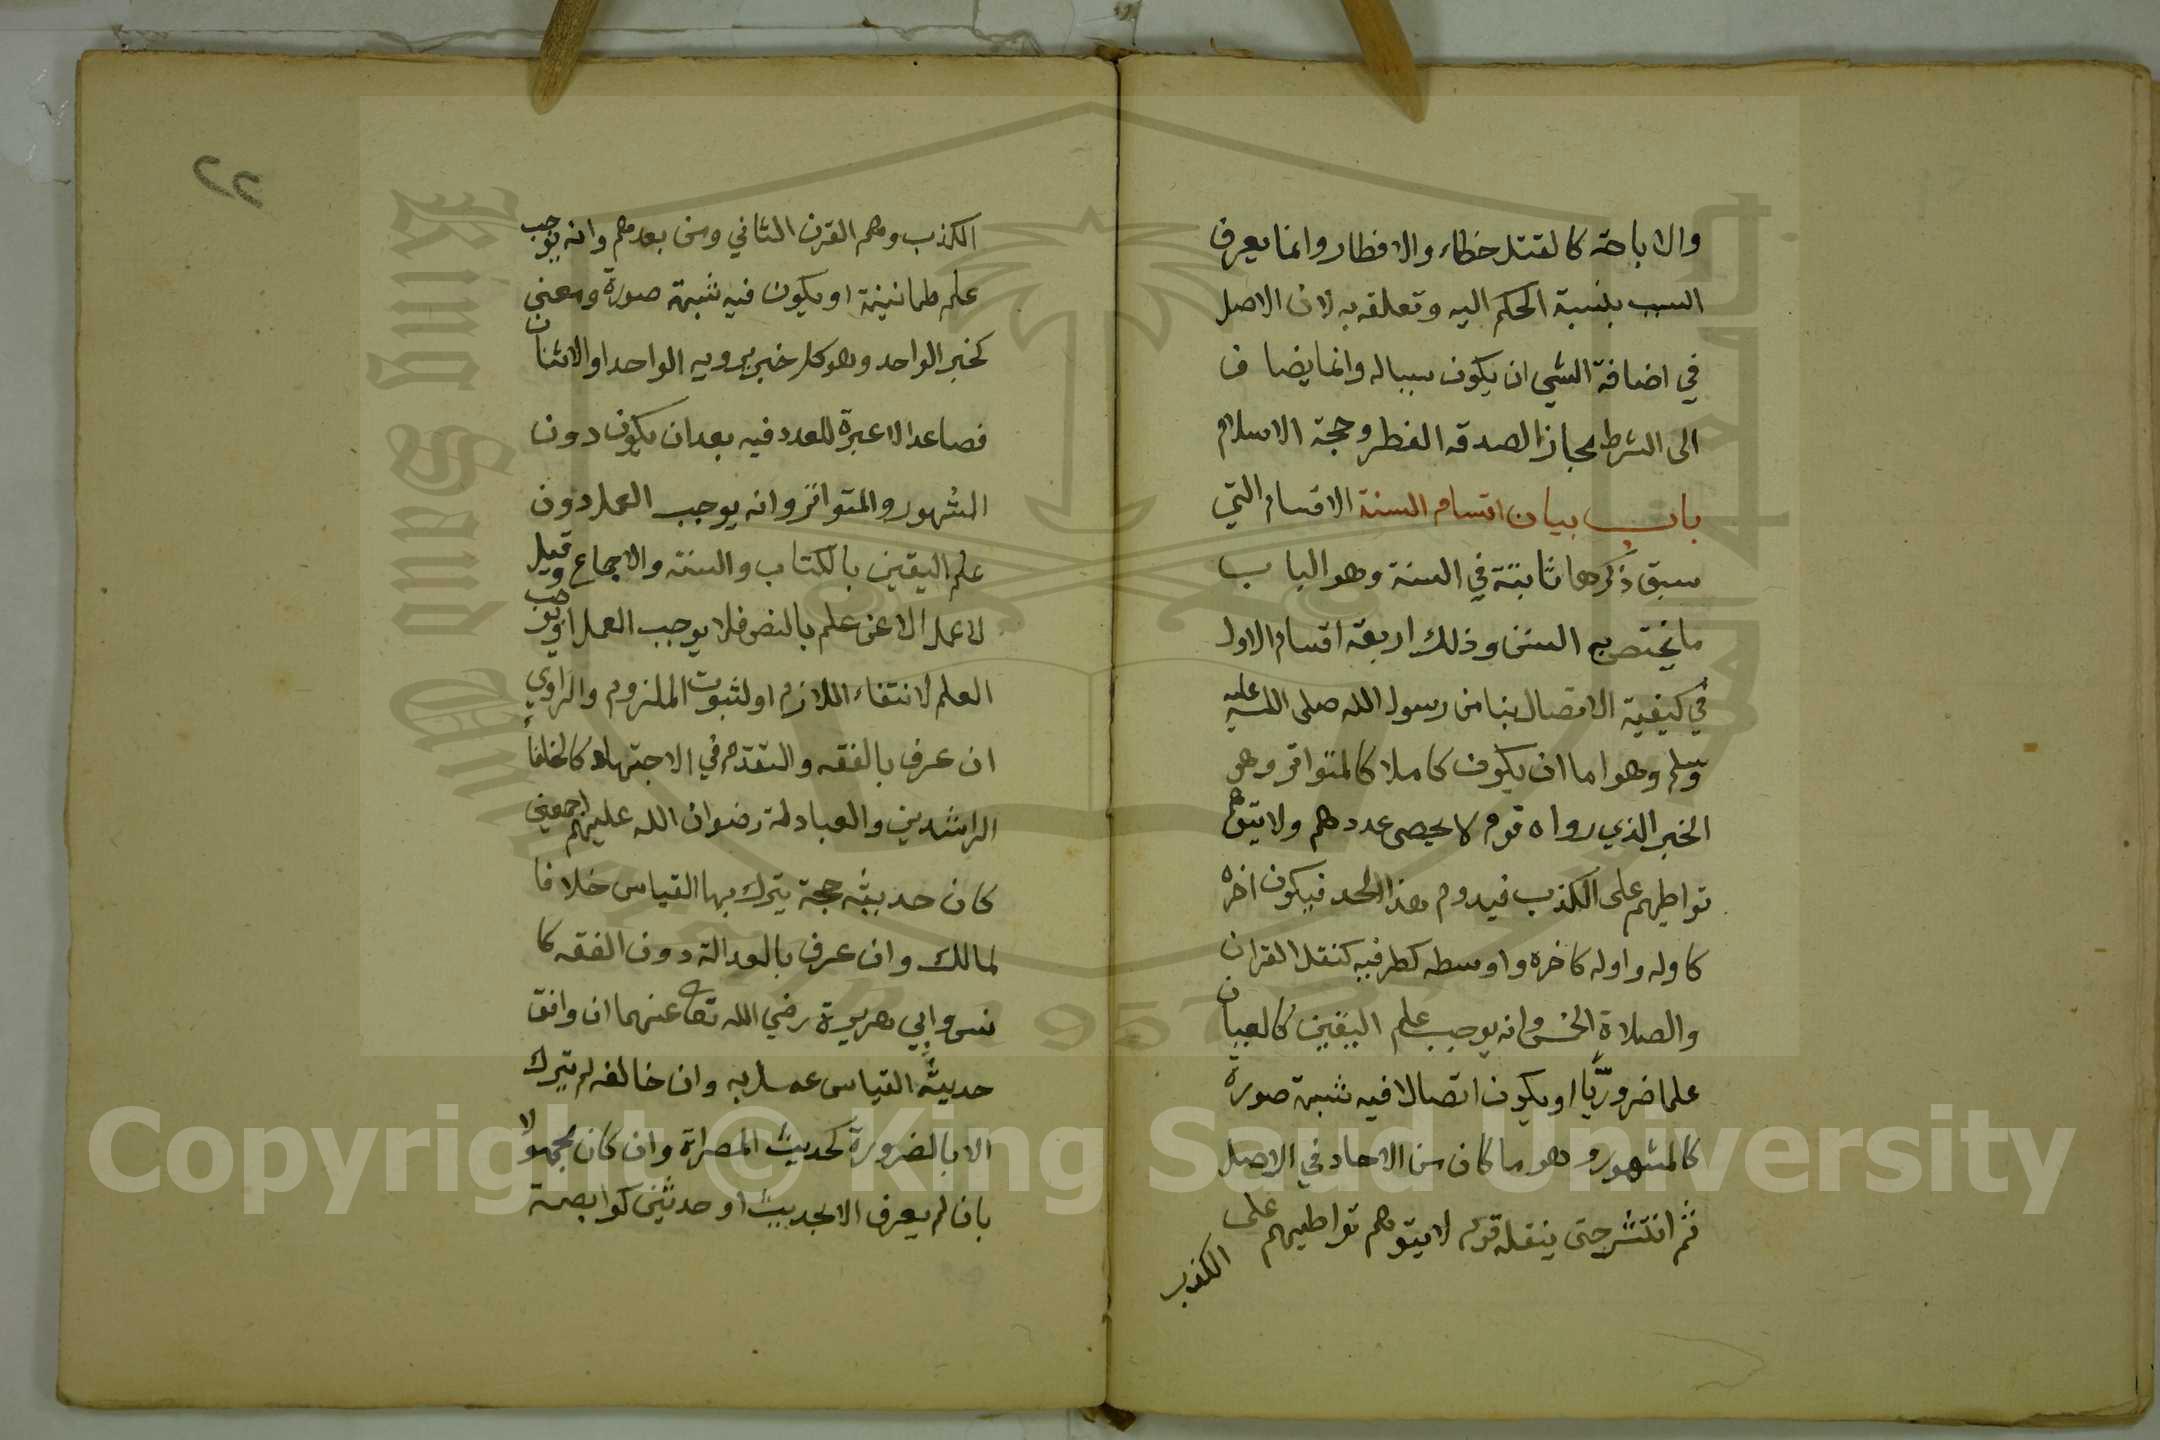 والاباحة كالقتل خطاء والافطار وانما يعرف
السبب بنسبة الحكم اليه وتعلقه به لان الاصل
في اضافة الشي ان يكون سبباله وانما يضاف
الى الشرط مجازا الصدقه الفطر وحجة الاسلام
باب بيان اقسام السنة الاقسام التي
سبق ذكرها ثابتة في السنة وهو الباب
ما يختص به السنن وذلك اربعة اقسام الاول
في كيفية الاتصال بنا من رسول الله صلى الله عليه
وسلم وهو اما ان يكون كاملا كالمتواتر وهو
الخبر الذي رواه قوم لا يحصى عددهم ولا يتوهم
تواطيهم على الكذب فيدوم هذا الحد فيكون اخره
كاوله واوله كاخره واوسطه كطرفيه كنقل القران
والصلاة الخمس وانه يوجب علم اليقين كالعيان
علما ضروريا او يكون اتصالا فيه شبهة صورة
كالمشهور وهو ما كان من الاحاد في الاصل
ثم انتشر حتى ينقله قوم لا يتوهم تواطيهم على
الكذب
٢٢
الكذب وهم القرن الثاني ومن بعدهم وانه يوجب
علم طمانينة او يكون فيه شبهة صورة ومعنى
كخبر الواحد وهو كل خبر يرويه الواحد او الاثنان
فصاعدا لا عبرة للعدد فيه بعد ان يكون دون
المشهور والمتواتر وانه يوجب العمل دون
علم اليقين بالكتاب والسنة والاجماع وقيل
لا عمل الا عن علم بالنص فلا يوجب العمل او يوجب
العلم لانتفاء اللازم او لثبوت الملزوم والراوي
ان عرف بالفقه والتقدم في الاجتهاد كالخلفاء
الراشدين والعبادلة رضوان الله عليهم اجمعين
كان حديثه حجة يترك بها القياس خلافا
لمالك وان عرف بالعدالة دون الفقه كا
نس وابي هريرة رضي الله تعا عنهما ان وافق
حديثه القياس عمل به وان خالفه لم يترك
الا بالضرورة كحديث المصراة وان كان مجهولا
بان لم يعرف الا بحديث او حدثين كوابصة
Copyright © King Saud University
1957